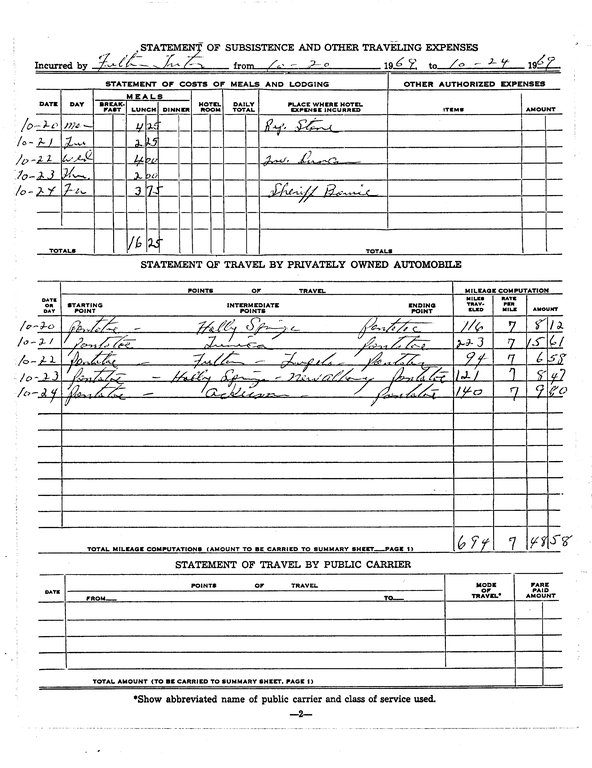 STATEMENT OF SUBSISTENCE AND OTHER TRAVELING EXPENSES
Incurred by Fulton from 10-20 1969 to 10-24 1969
STATEMENT OF COSTS OF MEALS AND LODGING OTHER AUTHORIZED EXPENSES
MEALS
DATE DAY BREAK-FAST LUNCH DINNER HOTEL ROOM DAILY TOTAL PLACE WHERE HOTEL EXPENSE INCURRED ITEMS AMOUNT
10-20 Mon 4 25 Stone
10-21 2 25
10-22 Wed 4 00
10-23 2 00
10-24 3 75 Sheriff
16 25
TOTALS TOTALS
STATEMENT OF TRAVEL BY PRIVATELY OWNED AUTOMOBILE
POINTS OF TRAVEL MILEAGE COMPUTATION
DATE OR DAY STARTING POINT INTERMEDIATE POINTS ENDING POINT MILES TRAV-ELED RATE PER MILE AMOUNT
10-20 Pontotoc - Holly Springs Pontotoc 116 7 8 12
10-21 Pontotoc Tunica Pontotoc 223 7 15 61
10-22 Pontotoc - Fulton - Tupelo - Pontotoc 94 7 6 58
10-23 Pontotoc - Holly Springs - New Albany Pontotoc 121 7 8 47
10-24 Pontotoc - Ackerman - Pontotoc 140 7 9 80
694 7 48 58
TOTAL MILEAGE COMPUTATIONS (AMOUNT TO BE CARRIED TO SUMMARY SHEET PAGE 1)
STATEMENT OF TRAVEL BY PUBLIC CARRIER
DATE POINTS OF TRAVEL MODE OF TRAVEL* FARE PAID AMOUNT
FROM TO
TOTAL AMOUNT (TO BE CARRIED TO SUMMARY SHEET. PAGE 1)
*Show abbreviated name of public carrier and class of service used.
—2—